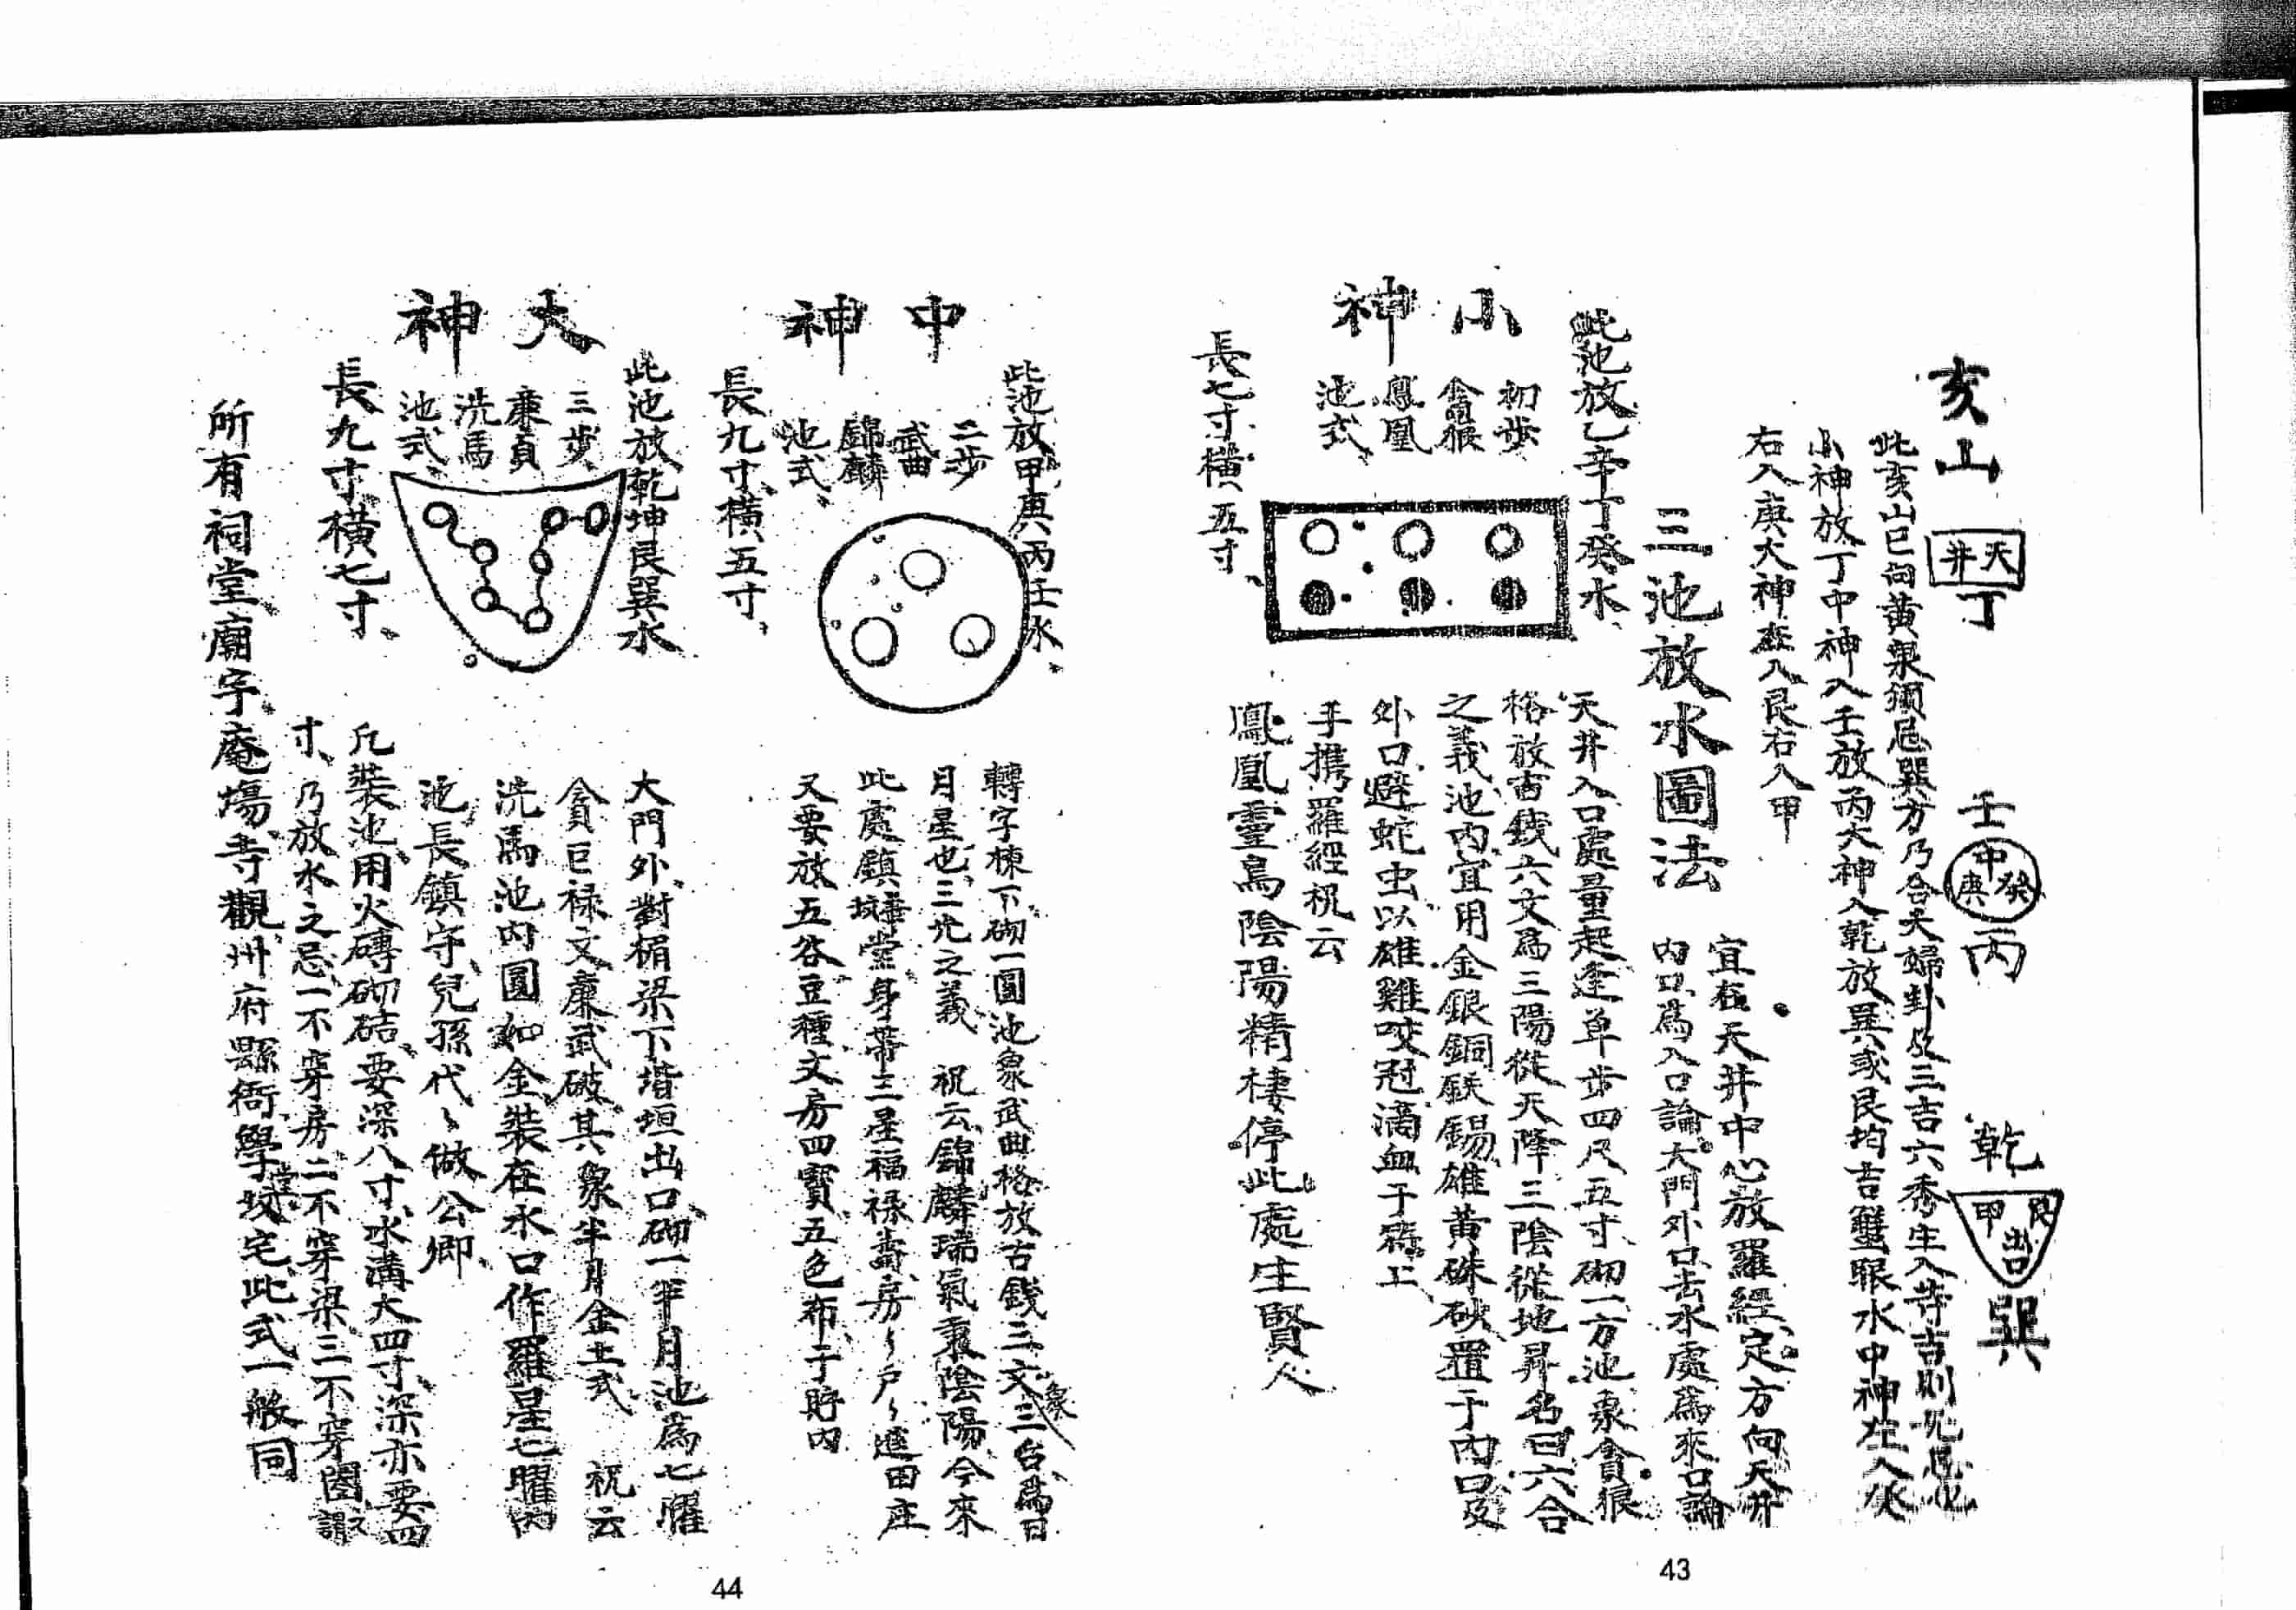 亥山 天井 丁 壬 中 癸 庚 丙 乾 艮 甲 出口 巽
此亥山巳向黃泉須忌巽方乃合夫婦卦及三吉六秀生入等吉則
小神放丁中神入壬放丙大神入乾放巽或艮均吉蟹眼水中神左入癸
右入庚大神左入艮右入甲
三池放水圖法
宜在天井中心放羅經定方向天井
內口為入口論大門外口去水處為來口論
此池放乙辛丁癸水
小神
初步
貪狼
鳳凰
池式
長七寸橫五寸
天井入口處量起逢單步四尺五寸砌一方池象貪狼
格放古錢六文為三陽從天降三陰從地昇名曰六合
之義池內宜用金銀銅鉄錫雄黃硃砂置于內口及
外口避蛇虫以雄雞咬冠滴血于 上
手携羅經祝云
鳳凰靈鳥陰陽精棲停此處生賢人
43
此池放甲庚丙壬水
中神
二步
武曲
錦麟
池式
長九寸橫五寸
轉字棟下砌一圓池象武曲格放古錢三文象三台為日
月星也三光之義 祝云錦麟瑞氣秉陰陽今來
此處鎮 堂身帶三星福祿壽房〻戶〻進田庄
又要放五谷豆種文房四寶五色布于貯內
此池放乾坤艮巽水
大神
三步
廉貞
洗馬
池式
長九寸橫七寸
大門外對楣梁下堦垣出口砌一半月池為七曜
貪巨祿文廉武破其象半月金土式 祝云
洗馬池內圓如金裝在水口作羅星七曜內
池長鎮守兒孫代〻做公卿
凡裝池用火磚砌結要深八寸水溝大四寸深亦要四
寸乃放水之忌一不穿房二不穿梁三不穿
所有祠堂廟宇庵塲寺觀州府縣衙學堂坟宅此式一般同
44